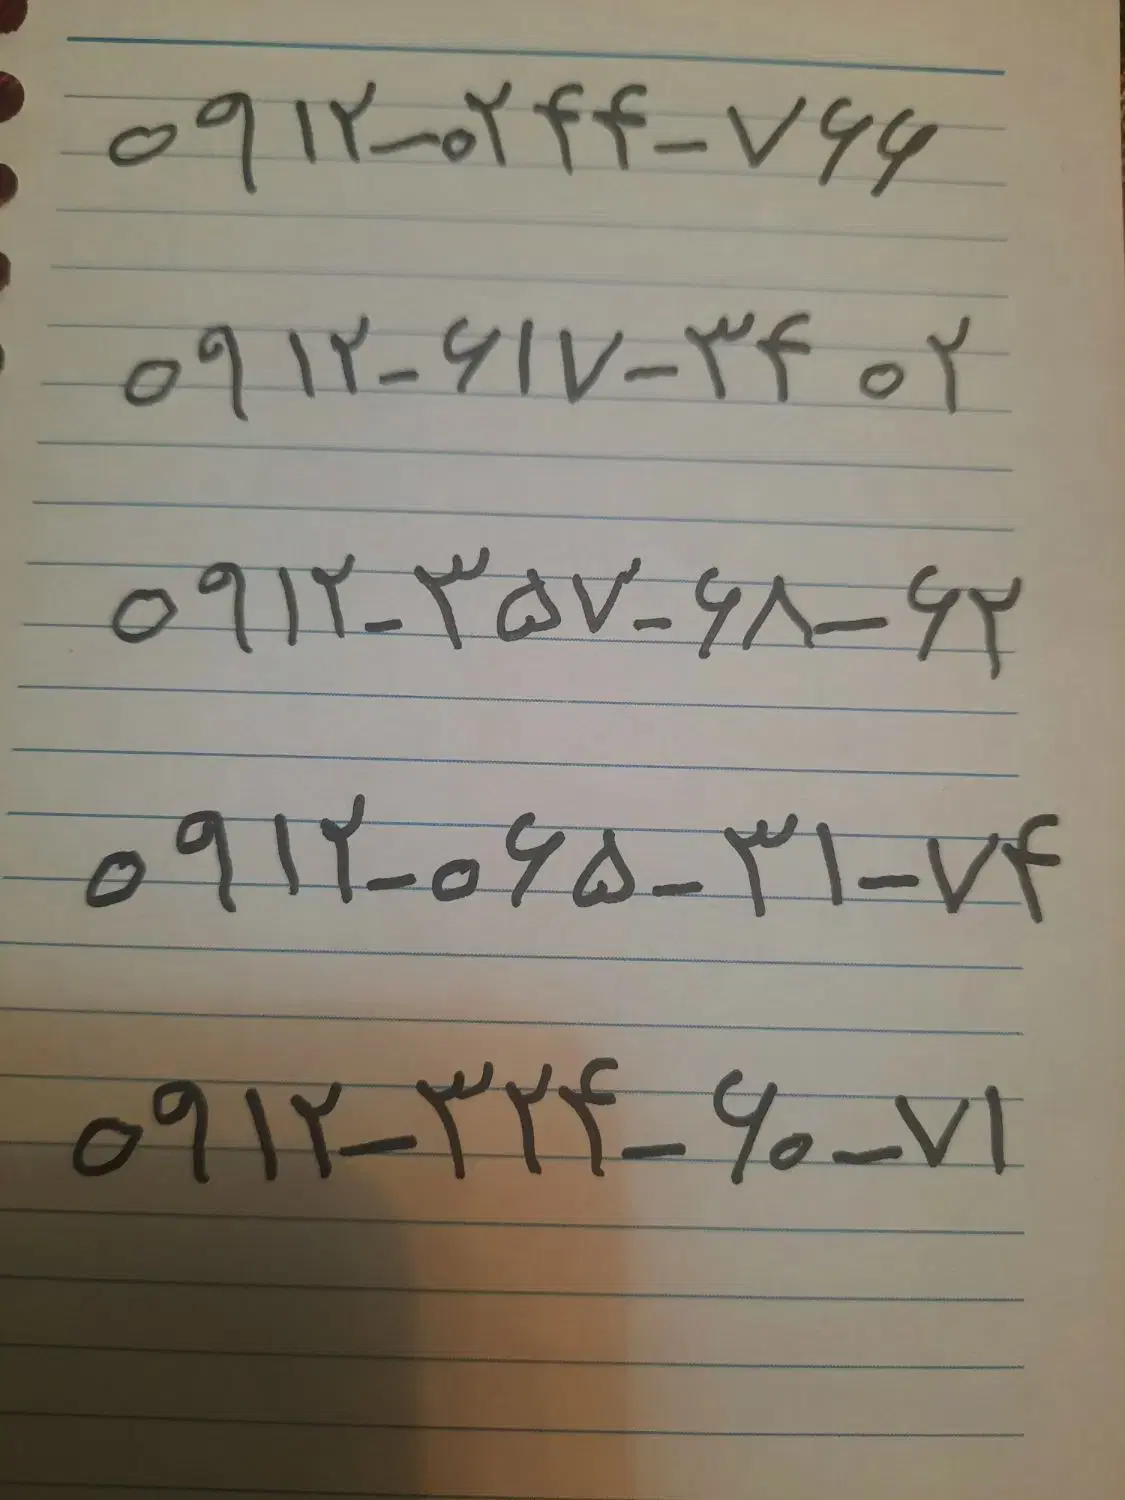 ۰۹۱۲-۰۲۴۴-۷۶۶
۰۹۱۲-۶۱۷-۳۴ ۰۲
۰۹۱۲-۳۵۷-۶۸-۶۲
۰۹۱۲-۰۶۵-۳۱-۷۴
۰۹۱۲-۳۲۴-۶۰-۷۱